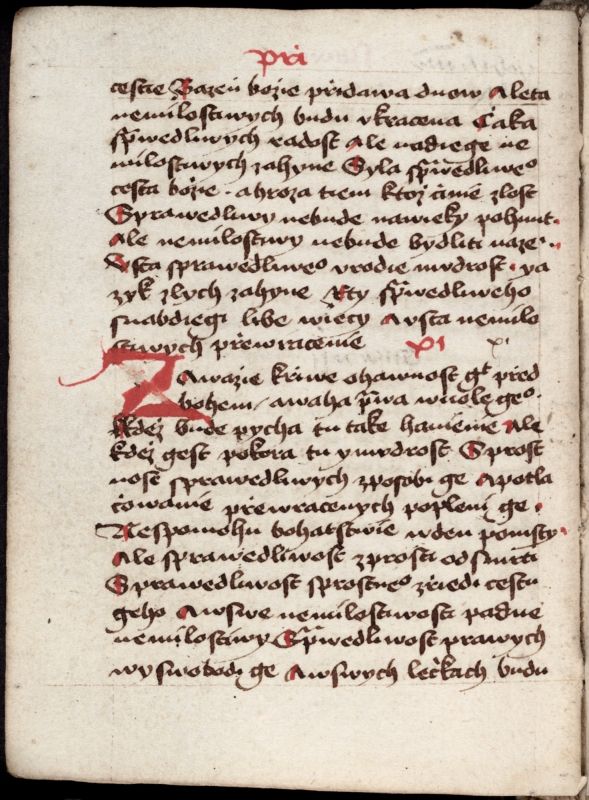 pri
cestie Bazeń božie przidawa dnow Aleta
nemilostiwych budu vkracena Cžaka
sp̄wedliwych radost Ale nadiege ne
milostiwych zahyne Syla sp̄wedliweᵒ
cesta božie · a hroza tiem ktož čine zlost
Sprawedliwy nebude nawieky pohnut ·
Ale nemilostiwy nebude bydliti naze ·
Vsta sprawedliweᵒ vrodie mudrost · ya
zyk zlych zahyne Rty sp̄wedliweho
snabdiegi libe wiecy A vsta nemilo
stiwych przewracenie xı xı
Zawazie kriwe ohawnost gᵗ przed
bohem / awaha p̄wa wuole geᵒ ·
Kdež bude pycha tu take hanienie Ale
kdež gest pokora tu ymudrost Sprost
nost sprawedliwych zposobi ge Apotla
čowanie przewracenych poplení ge ·
Nespomohu bohatstwie wden pomsty ·
Ale sprawedliwost zprosti od smrti
Sprawedliwost sprostneᵒ zriedi cestu
geho Awswe nemilostiwosti padne
nemilostiwy Sp̄wedliwost prawych
wyswobodi ge Awswych lečkach budu